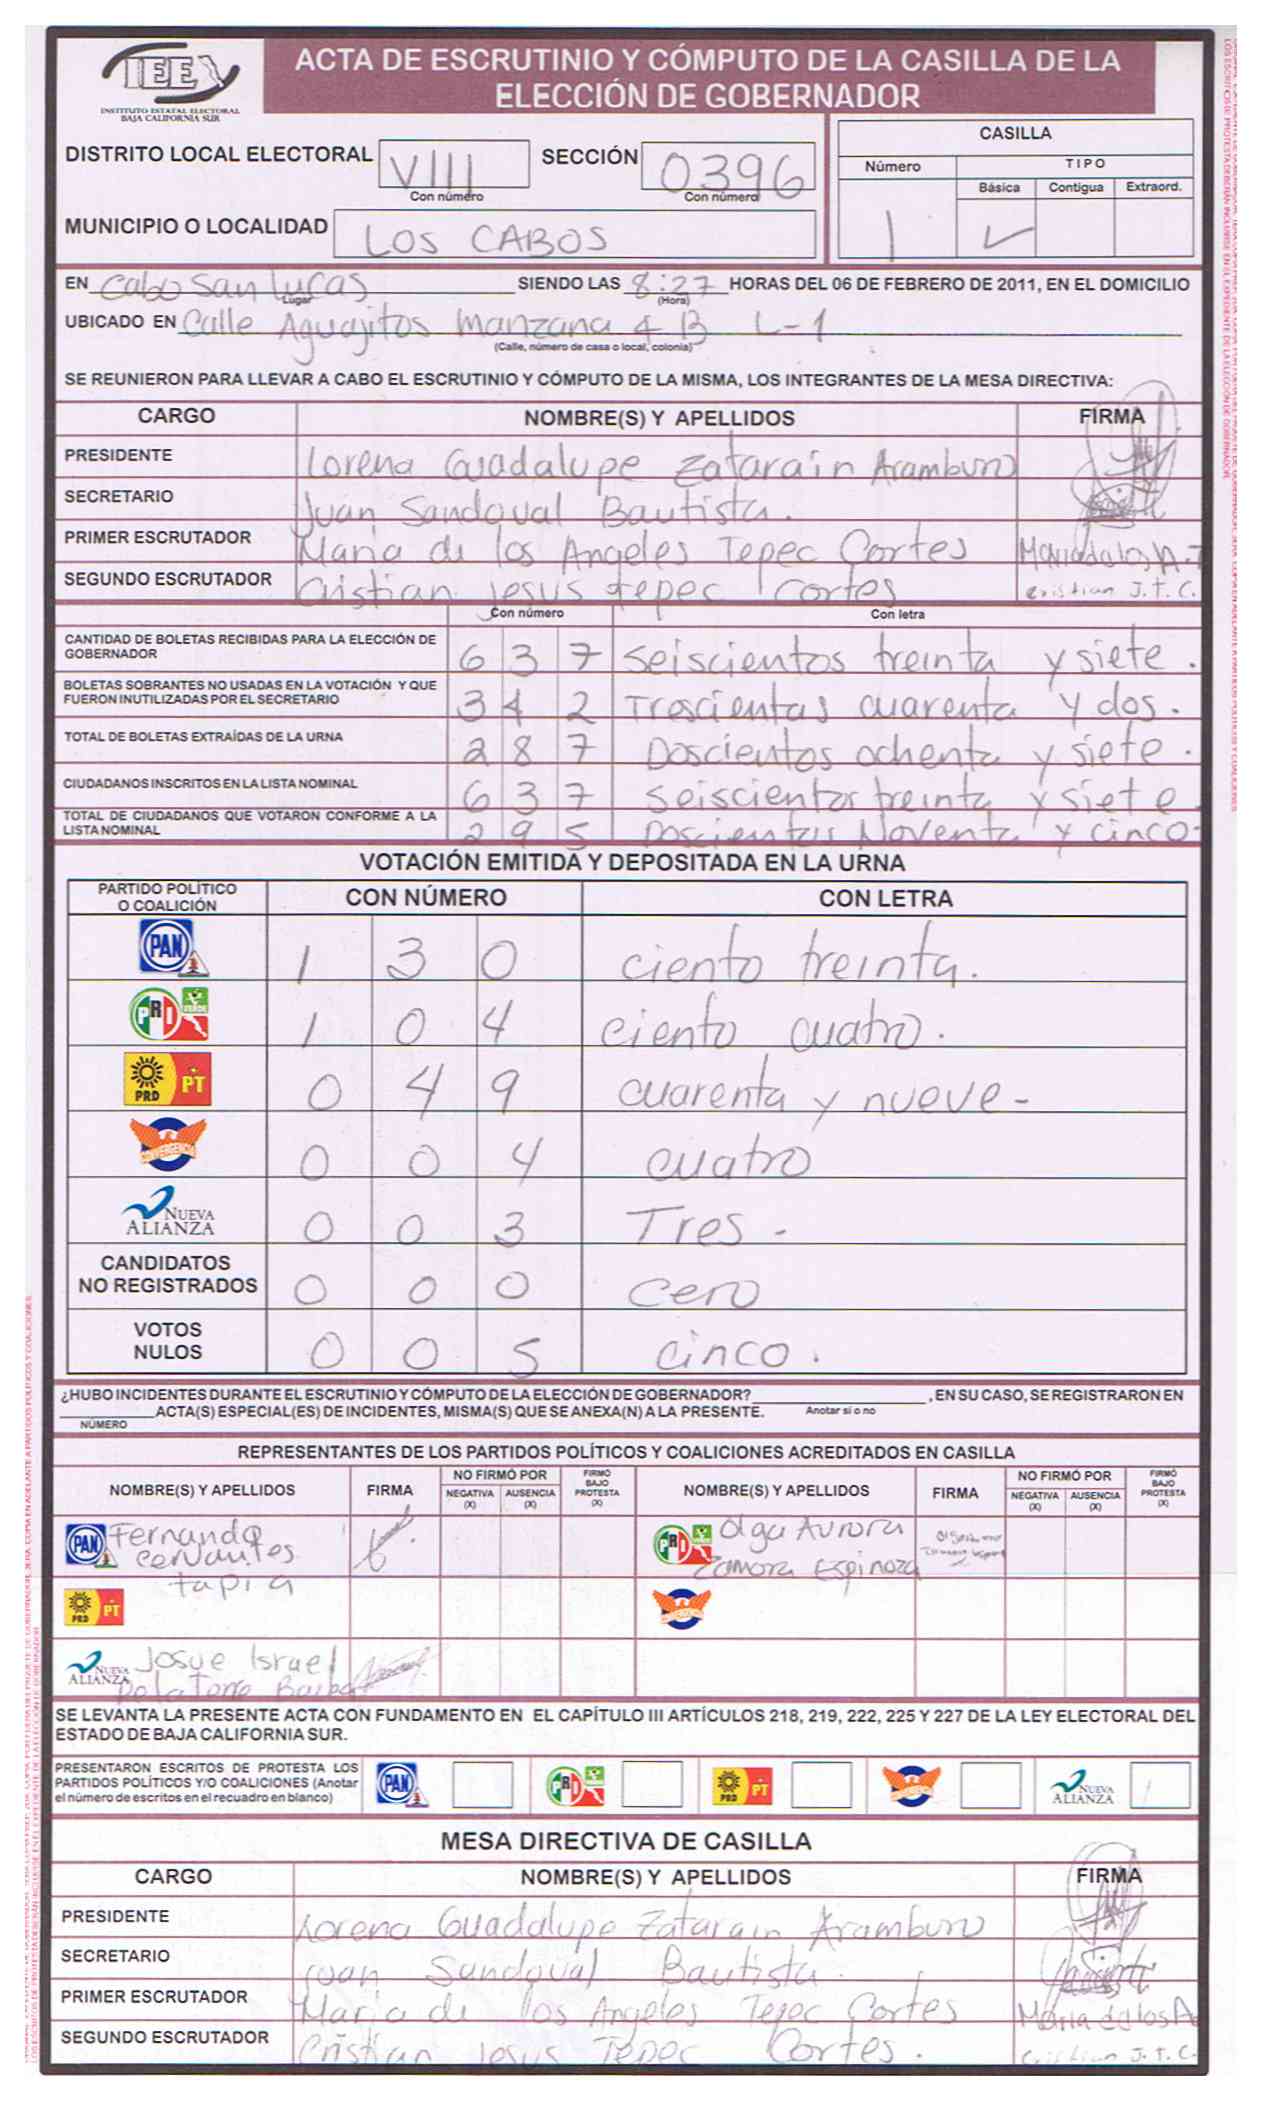 IEEX
INSTITUTO ESTATAL ELECTORAL
BAJA CALIFORNIA SUR
ACTA DE ESCRUTINIO Y CÓMPUTO DE LA CASILLA DE LA
ELECCIÓN DE GOBERNADOR
DISTRITO LOCAL ELECTORAL VIII SECCIÓN 0396
Con número Con número
MUNICIPIO O LOCALIDAD LOS CABOS
CASILLA
Número TIPO
Básica Contigua Extraord.
1 ✓
EN Cabo San Lucas SIENDO LAS 8:27 HORAS DEL 06 DE FEBRERO DE 2011, EN EL DOMICILIO
Lugar (Hora)
UBICADO EN Calle Aguajitos Manzana 4 B L-1
(Calle, número de casa o local, colonia)
SE REUNIERON PARA LLEVAR A CABO EL ESCRUTINIO Y CÓMPUTO DE LA MISMA, LOS INTEGRANTES DE LA MESA DIRECTIVA:
CARGO NOMBRE(S) Y APELLIDOS FIRMA
PRESIDENTE Lorena Guadalupe Zatarain Aramburo
SECRETARIO Juan Sandoval Bautista.
PRIMER ESCRUTADOR Maria de los Angeles Tepec Cortes
SEGUNDO ESCRUTADOR Cristian Jesus tepec Cortes Cristian J.T.C.
Con número Con letra
CANTIDAD DE BOLETAS RECIBIDAS PARA LA ELECCIÓN DE
GOBERNADOR 6 3 7 seiscientos treinta y siete.
BOLETAS SOBRANTES NO USADAS EN LA VOTACIÓN Y QUE
FUERON INUTILIZADAS POR EL SECRETARIO 3 4 2 Trescientas cuarenta y dos.
TOTAL DE BOLETAS EXTRAÍDAS DE LA URNA 2 8 7 Doscientos ochenta y siete.
CIUDADANOS INSCRITOS EN LA LISTA NOMINAL 6 3 7 seiscientos treinta y siete.
TOTAL DE CIUDADANOS QUE VOTARON CONFORME A LA
LISTA NOMINAL 2 9 5 Doscientos Noventa y cinco-
VOTACIÓN EMITIDA Y DEPOSITADA EN LA URNA
PARTIDO POLÍTICO
O COALICIÓN CON NÚMERO CON LETRA
PAN 1 3 0 ciento treinta.
PRI VERDE 1 0 4 ciento cuatro.
PRD PT 0 4 9 cuarenta y nueve-
CONVERGENCIA 0 0 4 cuatro
NUEVA
ALIANZA 0 0 3 Tres -
CANDIDATOS
NO REGISTRADOS 0 0 0 cero
VOTOS
NULOS 0 0 5 cinco.
¿HUBO INCIDENTES DURANTE EL ESCRUTINIO Y CÓMPUTO DE LA ELECCIÓN DE GOBERNADOR? , EN SU CASO, SE REGISTRARON EN
ACTA(S) ESPECIAL(ES) DE INCIDENTES, MISMA(S) QUE SE ANEXA(N) A LA PRESENTE. Anotar si o no
NÚMERO
REPRESENTANTES DE LOS PARTIDOS POLÍTICOS Y COALICIONES ACREDITADOS EN CASILLA
NOMBRE(S) Y APELLIDOS FIRMA NO FIRMÓ POR NEGATIVA (X) AUSENCIA (X) FIRMÓ BAJO PROTESTA (X) NOMBRE(S) Y APELLIDOS FIRMA NO FIRMÓ POR NEGATIVA (X) AUSENCIA (X) FIRMÓ BAJO PROTESTA (X)
PAN Fernanda
cervantes
tapia
PRI VERDE Olga Aurora
Zamora Espinoza
PRD PT CONVERGENCIA
NUEVA
ALIANZA Josue Israel
De la Torre
SE LEVANTA LA PRESENTE ACTA CON FUNDAMENTO EN EL CAPÍTULO III ARTÍCULOS 218, 219, 222, 225 Y 227 DE LA LEY ELECTORAL DEL
ESTADO DE BAJA CALIFORNIA SUR.
PRESENTARON ESCRITOS DE PROTESTA LOS
PARTIDOS POLÍTICOS Y/O COALICIONES (Anotar
el número de escritos en el recuadro en blanco)
PAN PRI VERDE PRD PT CONVERGENCIA NUEVA ALIANZA
MESA DIRECTIVA DE CASILLA
CARGO NOMBRE(S) Y APELLIDOS FIRMA
PRESIDENTE Lorena Guadalupe Zatarain Aramburo
SECRETARIO Juan Sandoval Bautista.
PRIMER ESCRUTADOR Maria de los Angeles Tepec Cortes Maria de los A
SEGUNDO ESCRUTADOR Cristian Jesus Tepec Cortes. Cristian J.T.C.